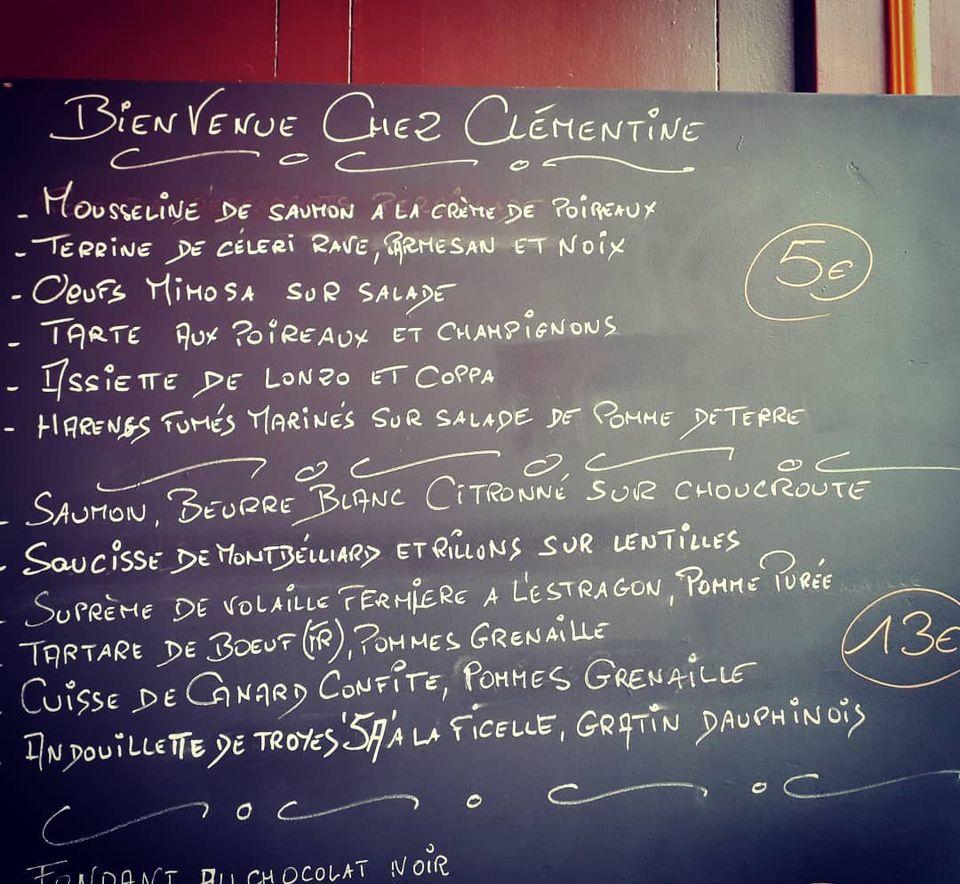 BIENVENUE CHEZ CLÉMENTINE
- MOUSSELINE DE SAUMON A LA CRÈME DE POIREAUX
- TERRINE DE CÉLERI RAVE, PARMESAN ET NOIX
5€
- OEUFS MIMOSA SUR SALADE
- TARTE AUX POIREAUX ET CHAMPIGNONS
- ASSIETTE DE LONZO ET COPPA
- HARENGS FUMÉS MARINÉS SUR SALADE DE POMME DE TERRE
- SAUMON, BEURRE BLANC CITRONNÉ SUR CHOUCROUTE
- SAUCISSE DE MONTBÉLLIARD ET RILLONS SUR LENTILLES
- SUPRÈME DE VOLAILLE FERMIERE A L'ESTRAGON, POMME PURÉE
- TARTARE DE BOEUF (FR), POMMES GRENAILLE
13€
- CUISSE DE CANARD CONFITE, POMMES GRENAILLE
- ANDOUILLETTE DE TROYES '5A' A LA FICELLE, GRATIN DAUPHINOIS
FONDANT AU CHOCOLAT NOIR